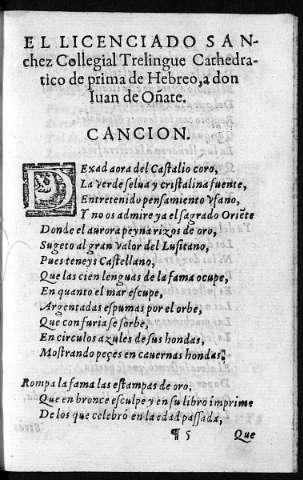 EL LICENCIADO SAN-
chez Collegial Trelingue Cathedra-
tico de prima de Hebreo, a don
Iuan de Oñate.
CANCION.
DExad aora del Castalio coro,
La verde selua y cristalina fuente,
Entretenido pensamiento vfano,
Y no os admire ya el sagrado Oriẽte
Donde el aurora peyna rizos de oro,
Sugeto al gran valor del Lusitano,
Pues teneys Castellano,
Que las cien lenguas de la fama ocupe,
En quanto el mar escupe,
Argentadas espumas por el orbe,
Que con furia se sorbe,
En circulos azules de sus hondas,
Mostrando peçes en cauernas hondas.
Rompa la fama las estampas de oro,
Que en bronce esculpe y en su libro imprime
De los que celebró en la edad passada,
¶ 5 Que